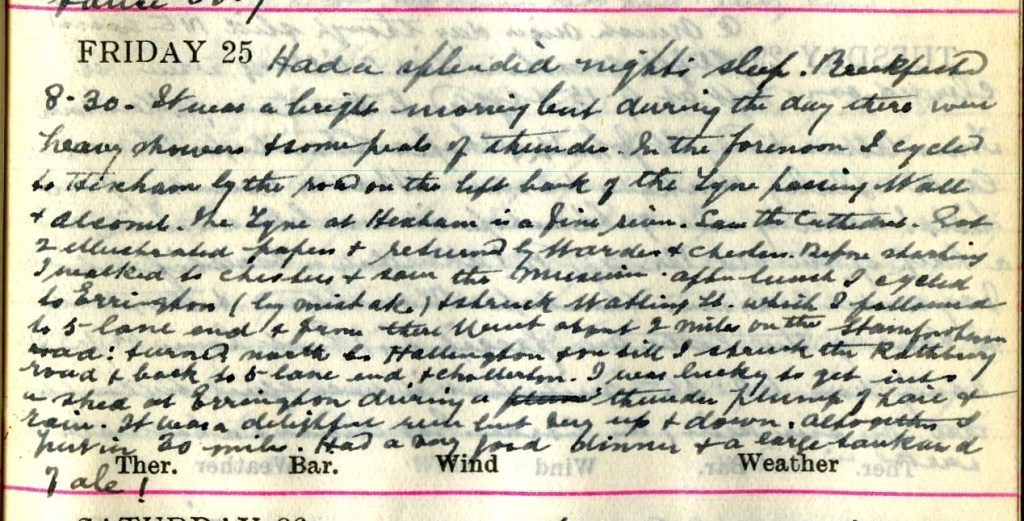 FRIDAY 25 Had a splendid nights sleep. Breakfasted
8-30. It was a bright morning but during the day there were
heavy showers & some peals of thunder. In the forenoon I cycled
to Hexham by the road on the left bank of the Tyne passing Wall
& Acomb. The Tyne at Hexham is a fine river. Saw the Cathedral. Got
2 illustrated papers & returned by Warden & Chesters. Before starting
I walked to Chesters & saw the Museum. After lunch I cycled
to Errington (by mistake) & struck Watling St. which I followed
to 5 lane end & from there went about 2 miles on the Stamfordham
road: turned north to Hallington & on till I struck the Rothbury
road & back to 5 lane end & Chollerton. I was lucky to get into
a shed at Errington during a thunder plump of hail &
rain. It was a delightful run but very up & down. Altogether I
put in 30 miles. Had a very good dinner & a large tankard
Ther. Bar. Wind Weather
of ale!
SATURDAY 26